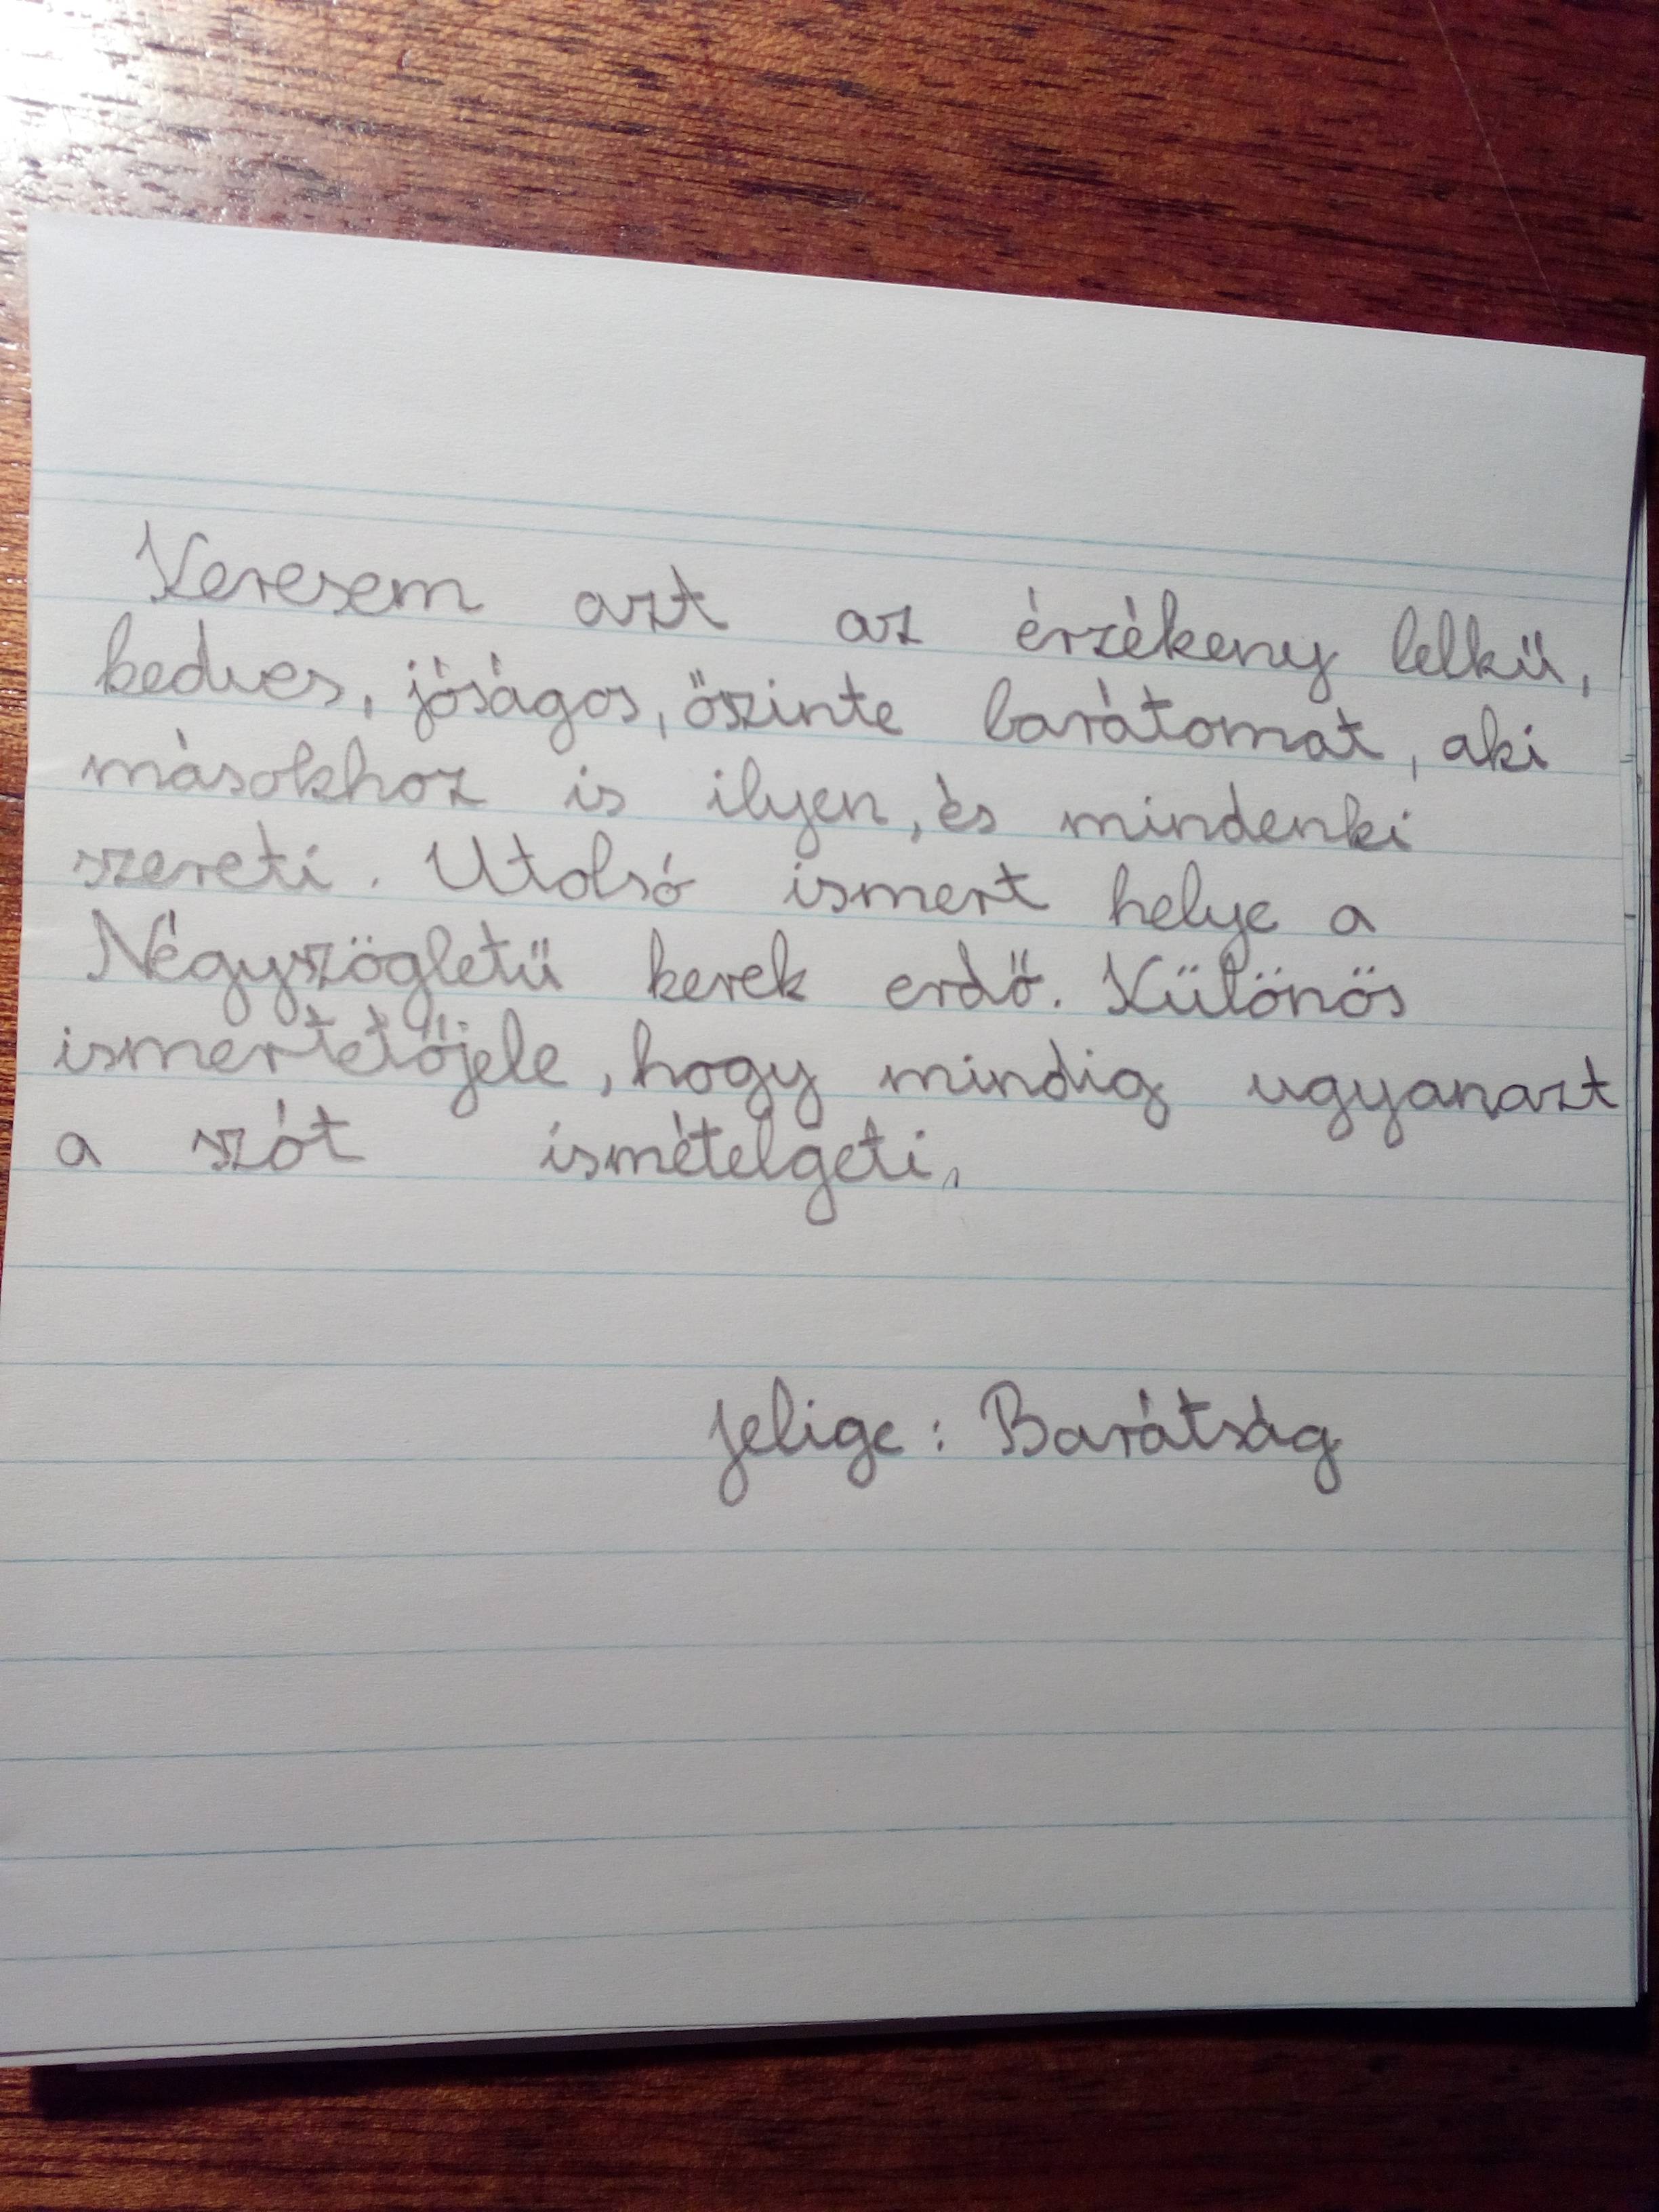 Keresem azt az érzékeny lelkű,
kedves, jóságos, őszinte barátomat, aki
másokhoz is ilyen, és mindenki
szereti. Utolsó ismert helye a
Négyszögletű kerek erdő. Különös
ismertetőjele, hogy mindig ugyanazt
a szót ismételgeti.
Jelige: Barátság